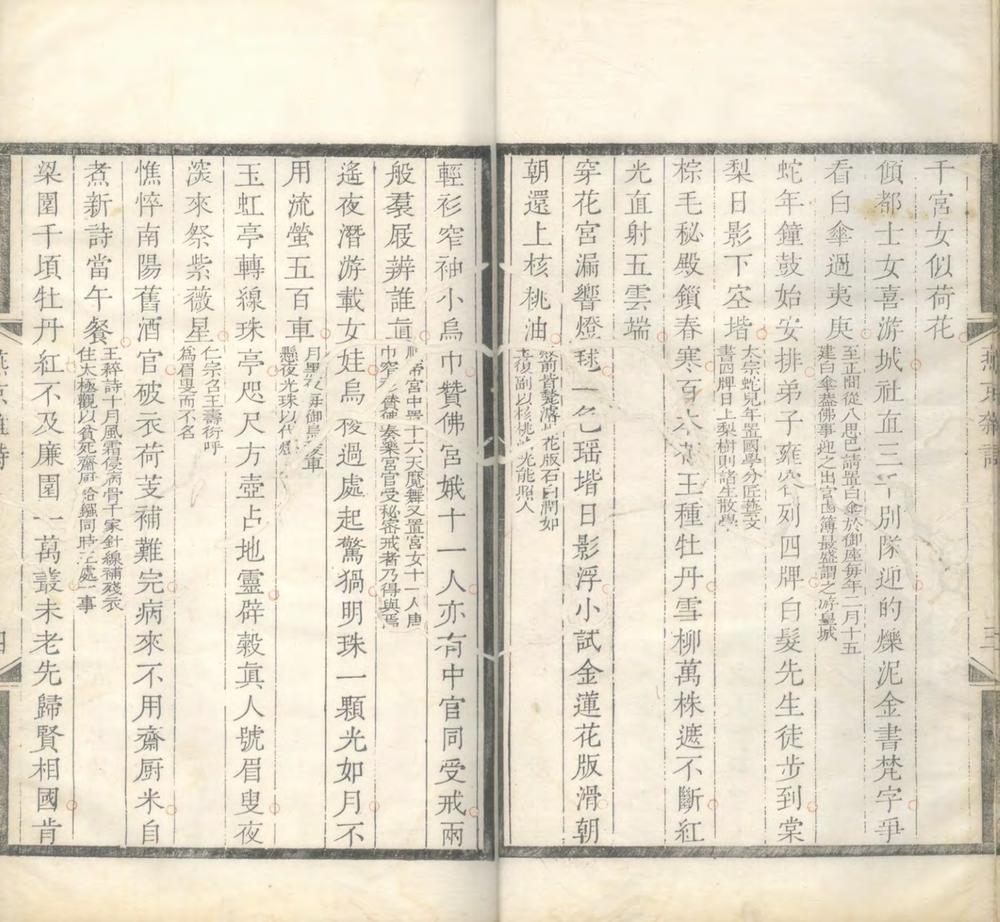 千宮女似荷花
傾都士女喜游城社直三千別隊迎的爍泥金書梵字爭
看白傘過夷庚
至正間從八思巴請置白傘於御座每年二月十五
建白傘蓋佛事迎之出宮鹵簿最盛謂之游皇城
蛇年鐘鼓始安排弟子雍容列四牌白髮先生徒步到棠
梨日影下空堦
太宗蛇兒年置國學分匠藝文
書四牌日上梨樹則諸生散學
棕毛秘殿鎖春寒百本王種牡丹雪柳萬株遮不斷紅
光直射五雲端
穿花宮漏響燈毬一色瑶堦日影浮小試金蓮花版滑朝
朝還上核桃油
花版石白潤如
光能照人
燕京雜詩
三
輕衫窄袖小烏巾贊佛宮娥十一人亦有中官同受戒兩
般羣屐辨誰直
宮中置十六天魔舞又置宮女十一人唐
巾窄奏樂宮官受秘密戒者乃得與焉
遙夜潛游載女娃烏過處起驚猧明珠一顆光如月不
用流螢五百車
月黑
懸夜光珠以代燈
玉虹亭轉線珠亭咫尺方壺占地靈辟穀真人號眉叟夜
深來祭紫薇星
仁宗召王壽衍呼
為眉叟而不名
憔悴南陽舊酒官破衣荷芰補難完病來不用齋厨米自
煮新詩當午餐
王粹詩十月風霜侵病骨千家針線補殘衣
住太極觀以貧死齋厨給鑷同時王處一事
梁園千頃牡丹紅不及廉園一萬叢未老先歸賢相國肯
四